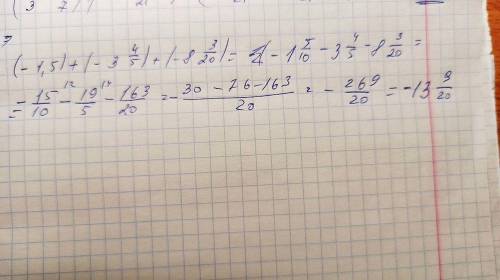 (-1,5)+(-3 4/5)+(-8 3/20)= -1 5/10 -3 4/5 -8 3/20 =
= -15/10 -19/5 -163/20 = -30-76-163/20 = -269/20 = -13 9/20